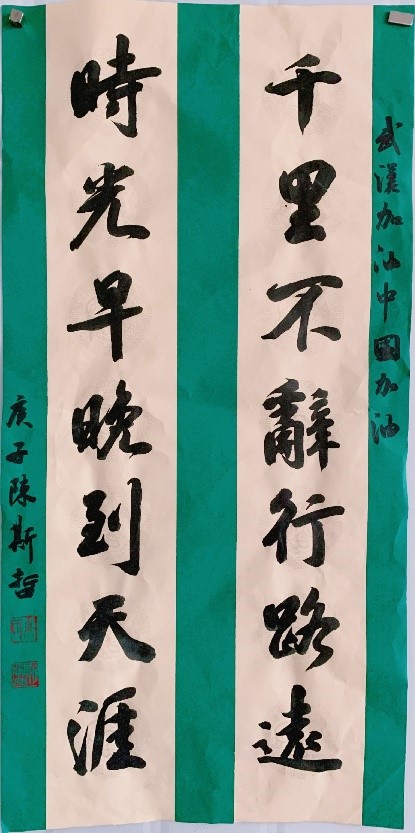 武漢加油中國加油
千里不辭行路遠
時光早晚到天涯
庚子陳斯哲